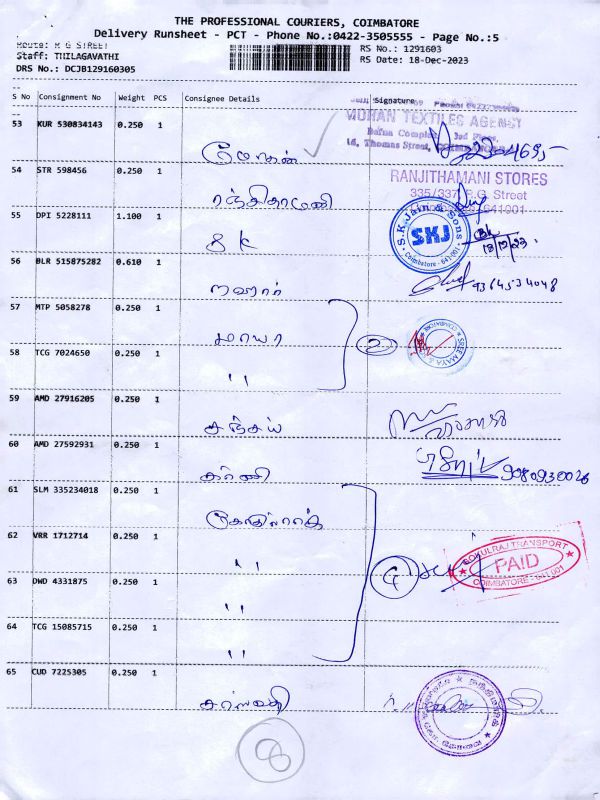 THE PROFESSIONAL COURIERS, COIMBATORE
Delivery Runsheet - PCT - Phone No.:0422-3505555 - Page No.:5
Route: R G STREET
RS No.: 1291603
Staff: THILAGAVATHI
RS Date: 18-Dec-2023
DRS No.: DCJB129160305
S No Consignment No Weight PCS Consignee Details Signature
53 KUR 530834143 0.250 1
MOHAN TEXTILES AGENCY
3rd Floor,
16, Thomas Street,
மோகன்
54 STR 598456 0.250 1
RANJITHAMANI STORES
335/337, R.G. Street
641001
ரஞ்சிதாமணி
55 DPI 5228111 1.100 1
S.K. Jain & Sons
SKJ
Coimbatore - 641 001
18/12/23
SK
56 BLR 515875282 0.610 1
9364534048
57 MTP 5058278 0.250 1
மாயா
2
SREE MAYA
58 TCG 7024650 0.250 1
"
59 AMD 27916205 0.250 1
சஞ்சய்
60 AMD 27592931 0.250 1
9080930026
61 SLM 335234018 0.250 1
கோகுல்ராஜ்
62 VRR 1712714 0.250 1
"
GOKULRAJ TRANSPORT
PAID
COIMBATORE - 641 001
63 DWD 4331875 0.250 1
"
64 TCG 15085715 0.250 1
"
65 CUD 7225305 0.250 1
சரஸ்வதி